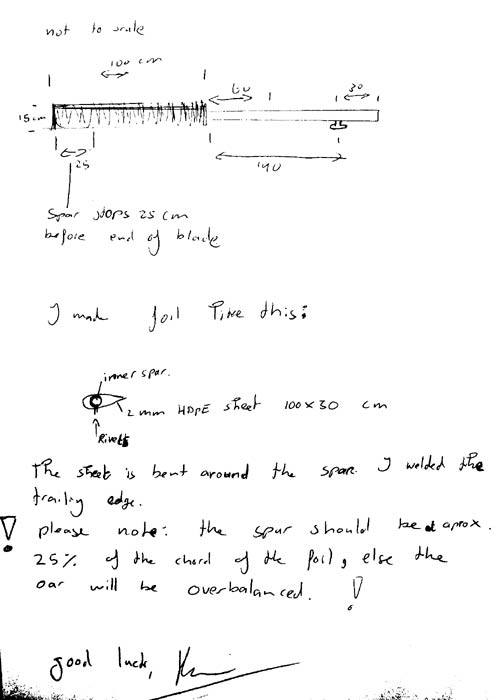 not to scale
100 cm
60
30
15 cm
25
140
Spar stops 25 cm
before end of blade
I made foil like this:
inner spar.
2 mm HDPE sheet 100 x 30 cm
Rivets
The sheet is bent around the spar. I welded the
trailing edge.
! please note: the spar should be at aprox.
25% of the chord of the foil, else the
oar will be overbalanced. !
good luck,